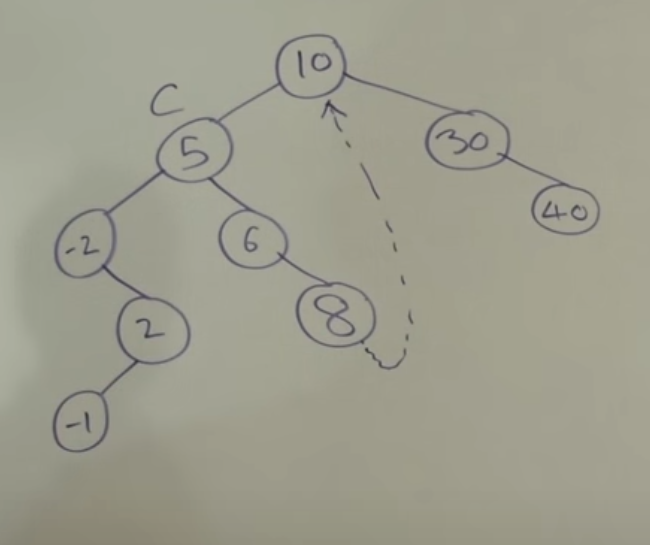 10
C
5
30
40
-2
6
8
2
-1